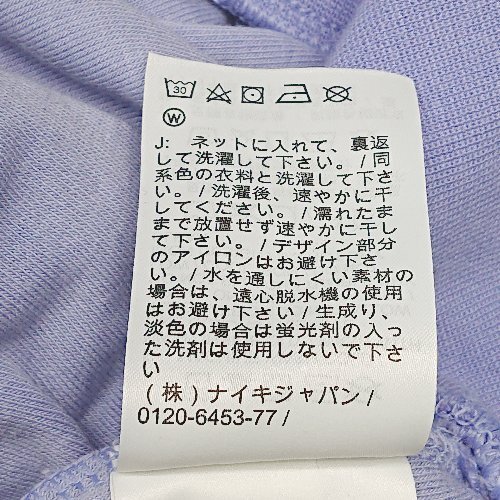 30
W
J: ネットに入れて、裏返
して洗濯して下さい。/ 同
系色の衣料と洗濯して下さ
い。/ 洗濯後、速やかに干
してください。/ 濡れたま
まで放置せず速やかに干
して下さい。/ デザイン部分
のアイロンはお避け下さ
い。/ 水を通しにくい素材の
場合は、遠心脱水機の使用
はお避け下さい / 生成り、
淡色の場合は蛍光剤の入っ
た洗剤は使用しないで下さ
い
(株) ナイキジャパン /
0120-6453-77 /